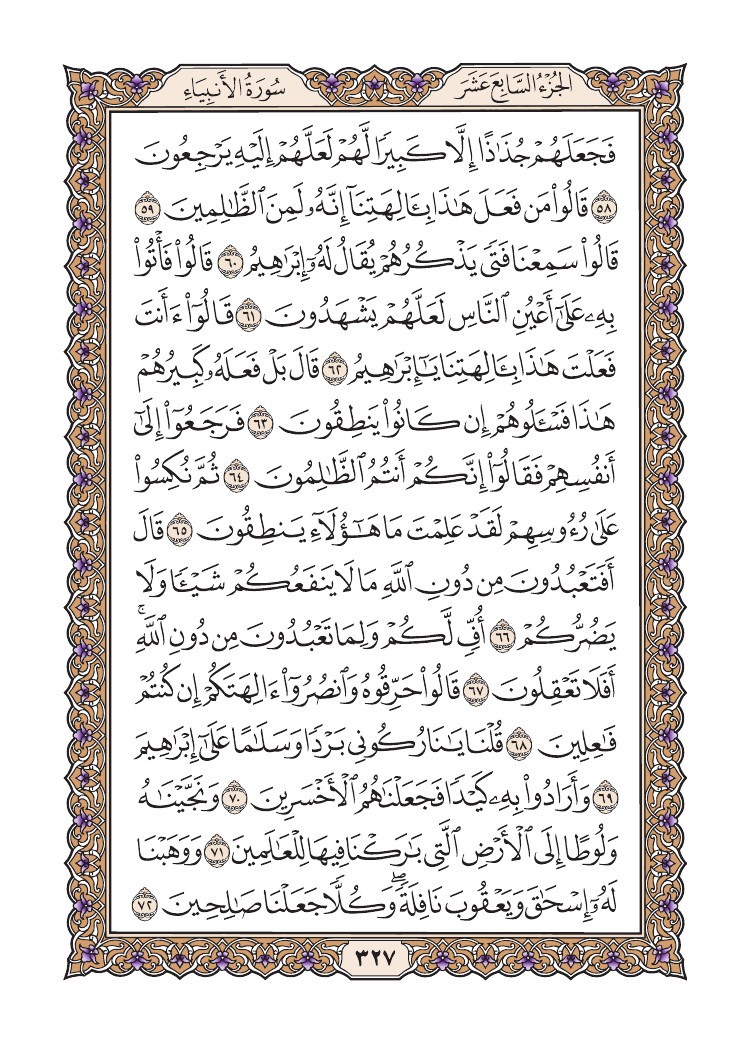 الجُزْءُ السَّابِعَ عَشَرَ
سُورَةُ الأَنبِيَاءِ
فَجَعَلَهُمْ جُذَٰذًا إِلَّا كَبِيرًا لَّهُمْ لَعَلَّهُمْ إِلَيْهِ يَرْجِعُونَ
٥٨ قَالُوا۟ مَن فَعَلَ هَٰذَا بِـَٔالِهَتِنَآ إِنَّهُۥ لَمِنَ ٱلظَّٰلِمِينَ ٥٩
قَالُوا۟ سَمِعْنَا فَتًى يَذْكُرُهُمْ يُقَالُ لَهُۥٓ إِبْرَٰهِيمُ ٦٠ قَالُوا۟ فَأْتُوا۟
بِهِۦ عَلَىٰٓ أَعْيُنِ ٱلنَّاسِ لَعَلَّهُمْ يَشْهَدُونَ ٦١ قَالُوٓا۟ ءَأَنتَ
فَعَلْتَ هَٰذَا بِـَٔالِهَتِنَا يَٰٓإِبْرَٰهِيمُ ٦٢ قَالَ بَلْ فَعَلَهُۥ كَبِيرُهُمْ
هَٰذَا فَسْـَٔلُوهُمْ إِن كَانُوا۟ يَنطِقُونَ ٦٣ فَرَجَعُوٓا۟ إِلَىٰٓ
أَنفُسِهِمْ فَقَالُوٓا۟ إِنَّكُمْ أَنتُمُ ٱلظَّٰلِمُونَ ٦٤ ثُمَّ نُكِسُوا۟
عَلَىٰ رُءُوسِهِمْ لَقَدْ عَلِمْتَ مَا هَٰٓؤُلَآءِ يَنطِقُونَ ٦٥ قَالَ
أَفَتَعْبُدُونَ مِن دُونِ ٱللَّهِ مَا لَا يَنفَعُكُمْ شَيْـًٔا وَلَا
يَضُرُّكُمْ ٦٦ أُفٍّ لَّكُمْ وَلِمَا تَعْبُدُونَ مِن دُونِ ٱللَّهِۚ
أَفَلَا تَعْقِلُونَ ٦٧ قَالُوا۟ حَرِّقُوهُ وَٱنصُرُوٓا۟ ءَالِهَتَكُمْ إِن كُنتُمْ
فَٰعِلِينَ ٦٨ قُلْنَا يَٰنَارُ كُونِى بَرْدًا وَسَلَٰمًا عَلَىٰٓ إِبْرَٰهِيمَ
٦٩ وَأَرَادُوا۟ بِهِۦ كَيْدًا فَجَعَلْنَٰهُمُ ٱلْأَخْسَرِينَ ٧٠ وَنَجَّيْنَٰهُ
وَلُوطًا إِلَى ٱلْأَرْضِ ٱلَّتِى بَٰرَكْنَا فِيهَا لِلْعَٰلَمِينَ ٧١ وَوَهَبْنَا
لَهُۥٓ إِسْحَٰقَ وَيَعْقُوبَ نَافِلَةًۖ وَكُلًّا جَعَلْنَا صَٰلِحِينَ ٧٢
٣٢٧